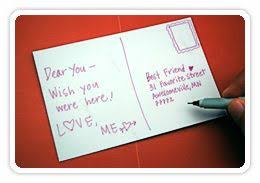 Dear You -
Wish you
were here!
L♡VE,
ME
Best Friend ♥
31 Favorite Street
Awesomeville, MN